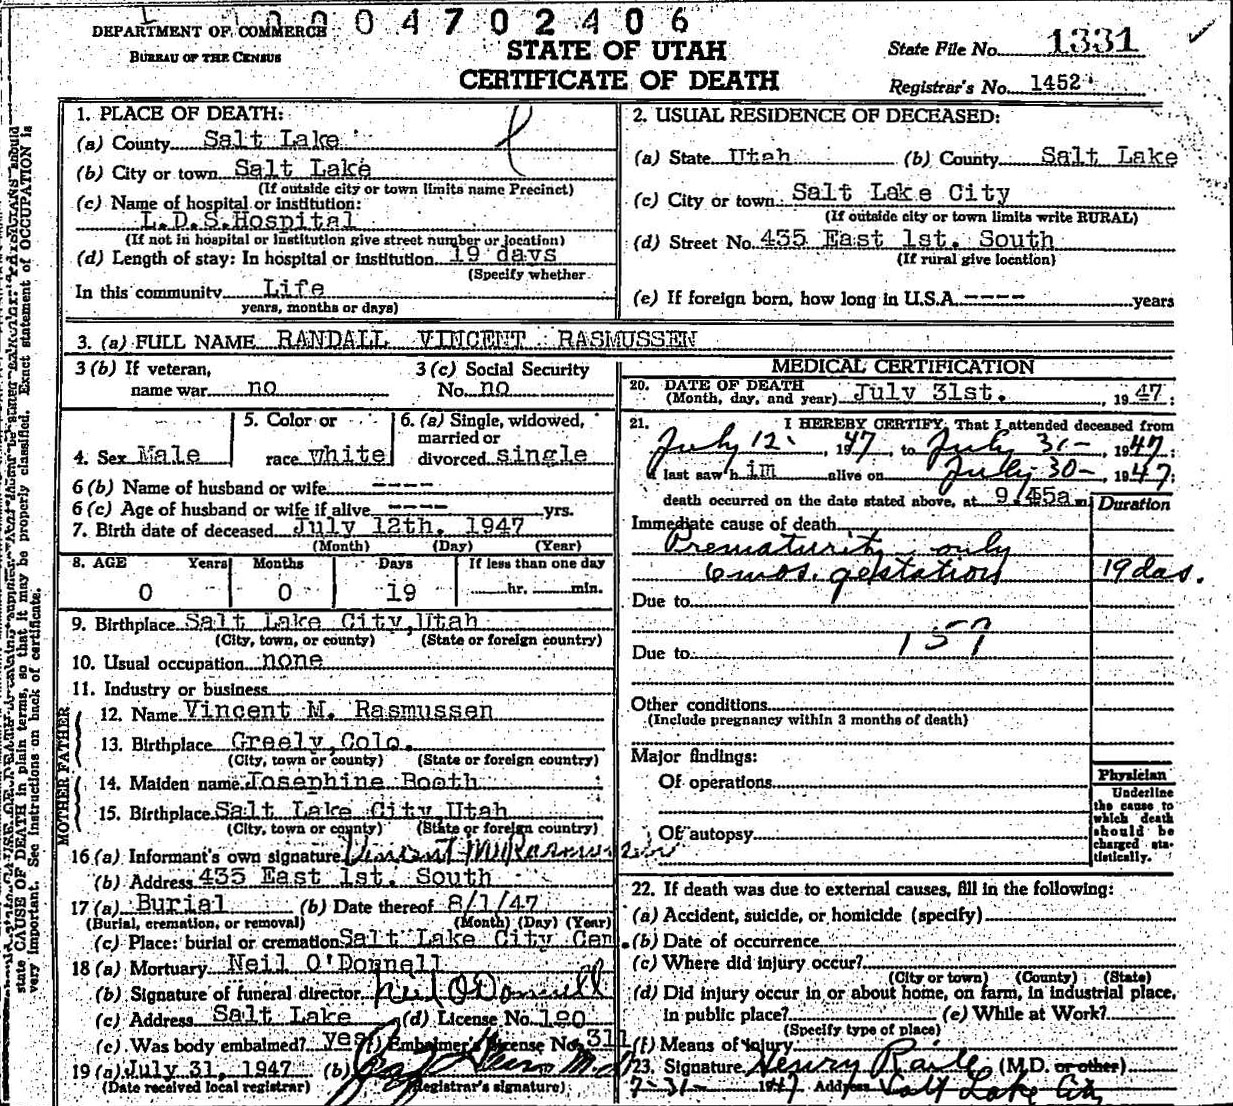 1 0 0 0 4 7 0 2 4 0 6
DEPARTMENT OF COMMERCE
BUREAU OF THE CENSUS
STATE OF UTAH
CERTIFICATE OF DEATH
State File No. 1331
Registrar's No. 1452
1. PLACE OF DEATH:
(a) County Salt Lake
(b) City or town Salt Lake
(If outside city or town limits name Precinct)
(c) Name of hospital or institution:
L.D.S.Hospital
(If not in hospital or institution give street number or location)
(d) Length of stay: In hospital or institution 19 days
(Specify whether
In this community Life
years, months or days)
2. USUAL RESIDENCE OF DECEASED:
(a) State Utah (b) County Salt Lake
(c) City or town Salt Lake City
(If outside city or town limits write RURAL)
(d) Street No. 435 East 1st. South
(If rural give location)
(e) If foreign born, how long in U.S.A. ---- years
3. (a) FULL NAME RANDALL VINCENT RASMUSSEN
3 (b) If veteran,
name war no
3 (c) Social Security
No. no
4. Sex Male
5. Color or
race white
6. (a) Single, widowed,
married or
divorced single
6 (b) Name of husband or wife ----
6 (c) Age of husband or wife if alive ---- yrs.
7. Birth date of deceased July 12th, 1947
(Month) (Day) (Year)
8. AGE Years Months Days If less than one day
0 0 19 hr. min.
9. Birthplace Salt Lake City,Utah
(City, town, or county) (State or foreign country)
10. Usual occupation none
11. Industry or business
FATHER
12. Name Vincent M. Rasmussen
13. Birthplace Greely,Colo.
(City, town or county) (State or foreign country)
MOTHER
14. Maiden name Josephine Booth
15. Birthplace Salt Lake City,Utah
(City, town or county) (State or foreign country)
16 (a) Informant's own signature Vincent M Rasmussen
(b) Address 435 East 1st. South
17 (a) Burial (b) Date thereof 8/1/47
(Burial, cremation, or removal) (Month) (Day) (Year)
(c) Place: burial or cremation Salt Lake City Cem.
18 (a) Mortuary Neil O'Donnell
(b) Signature of funeral director Neil O'Donnell
(c) Address Salt Lake (d) License No. 180
(e) Was body embalmed? yes (f) Embalmer's License No. 311
19 (a) July 31, 1947 (b)
(Date received local registrar) (Registrar's signature)
MEDICAL CERTIFICATION
20. DATE OF DEATH
(Month, day, and year) July 31st. , 19 47;
21. I HEREBY CERTIFY, That I attended deceased from
July 12, 1947, to July 31-, 1947;
I last saw him alive on July 30-, 1947;
death occurred on the date stated above, at 9.45a m.
Duration
Immediate cause of death
Prematurity only
6 mos. gestation 19 das.
Due to
157
Due to
Other conditions
(Include pregnancy within 3 months of death)
Major findings:
Of operations
Of autopsy
Physician
Underline
the cause to
which death
should be
charged sta-
tistically.
22. If death was due to external causes, fill in the following:
(a) Accident, suicide, or homicide (specify)
(b) Date of occurrence
(c) Where did injury occur?
(City or town) (County) (State)
(d) Did injury occur in or about home, on farm, in industrial place,
in public place? (e) While at Work?
(Specify type of place)
(f) Means of injury
23. Signature Henry Raile (M.D. or other)
7-31- 1947 Address Salt Lake City
state CAUSE OF DEATH in plain terms, so that it may be properly classified. Exact statement of OCCUPATION is
very important. See instructions on back of certificate.